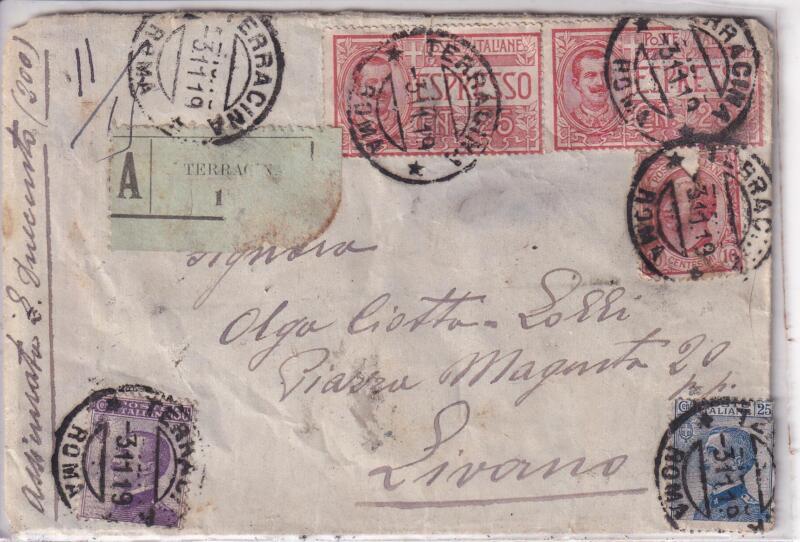 Assicurata L. Duecento (200)
TERRACINA
ROMA
-3.11.19
POSTE ITALIANE
ESPRESSO
CENT. 25
TERRACINA
ROMA
-3.11.19
ESPRE
25
TERRACINA
ROMA
-3.11.19
A
TERRACINA
1
TERRACI
ROMA
-3.11.19
CENTESIMI 10
Signora
Olga Ciotta-Lossi
Piazza Magenta 20
p.p.
Livorno
POSTE
ITALIANE
ROMA
-3.11.19
ITALIANE
25
ROMA
-3.11.19